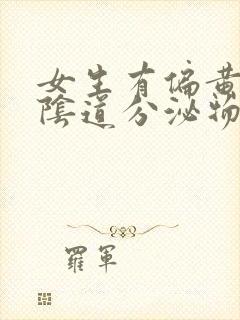 女生有偏黄
陰道分泌物
羅軍